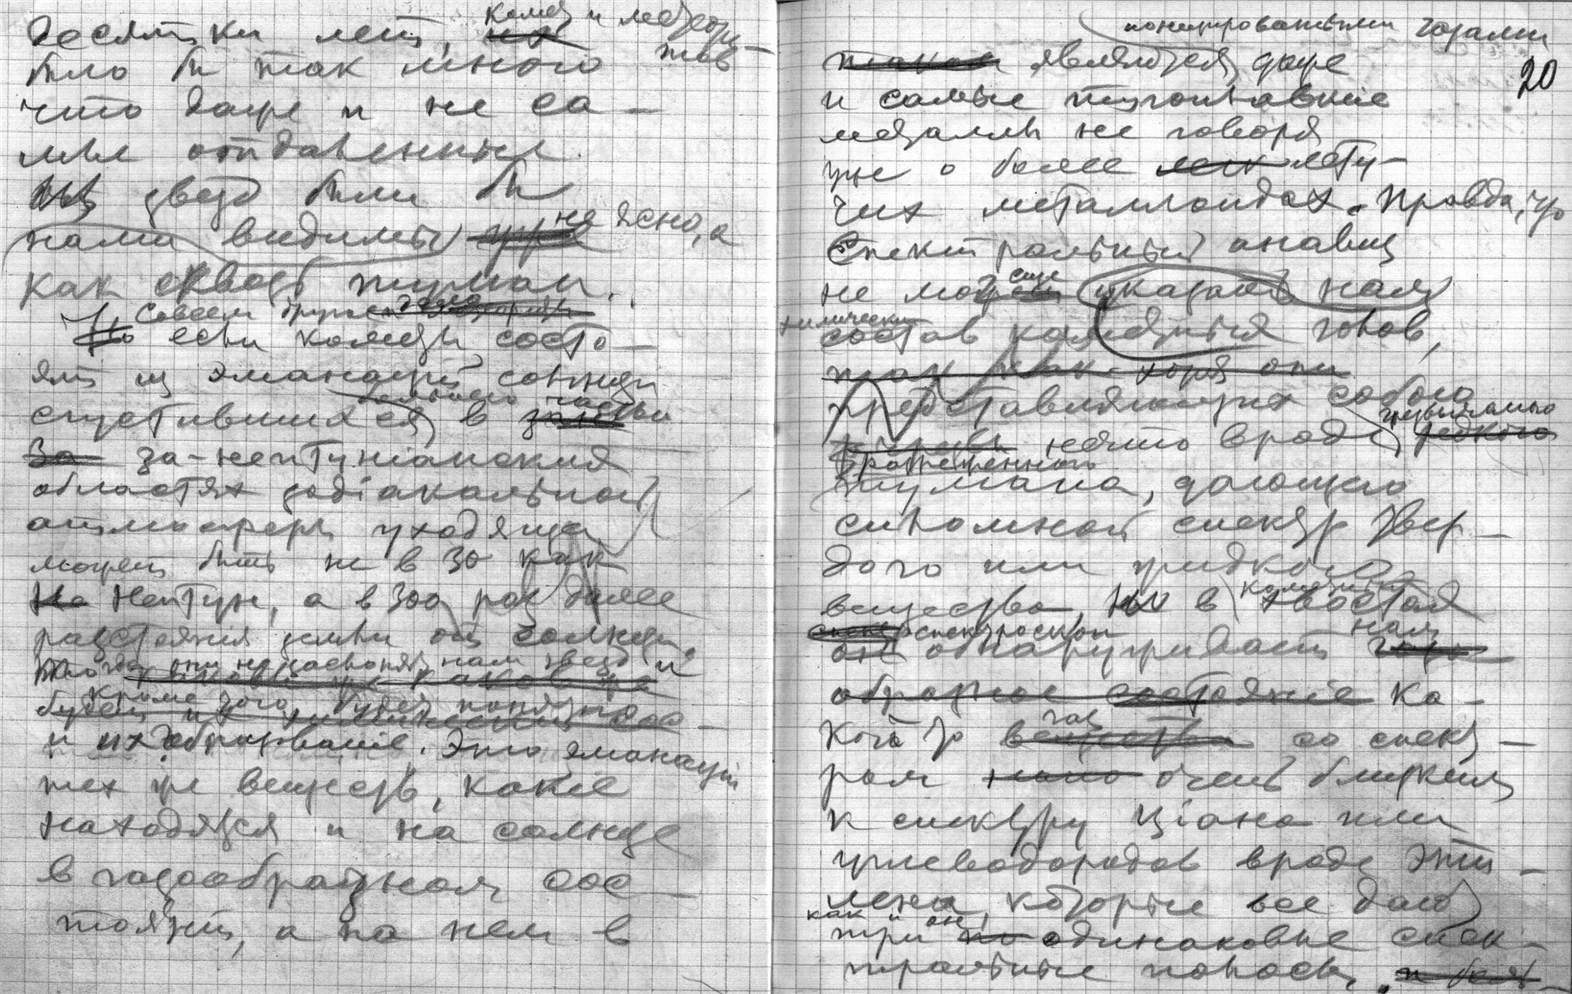 десятки лет, комет и метеори-
было бы так много тов
что даже и не са-
мые отдаленные
из звезд были бы
нами видимы не ясно, а
как сквозь туман.
Совсем другое
если кометы состо-
ят из эманаций солнца
сгустившихся в
за-нептунианских
областях зодіакальной
атмосферы уходящей
может быть не в 30 как
Нептун, а в 300 раз далее
разстояния земли от солнца.
Тогда они не заслонят нам звезд и
Кроме того, будет понятно
и их образованіе. Это эманации
тех же веществ, какіе
находятся и на солнце
в газообразном сос-
тояніи, а на нем в
ионизированными газами
20
являются даже
и самые тугоплавкіе
металлы не говоря
уже о более лету-
чих металлоидах. Правда, что
Спектральный анализ
не может еще указать нам
химический
состав кометных голов,
представляющих собою
нечто вроде чрезвычайно
разреженного
тумана, дающего
сплошной спектр твер-
дого или жидкого
вещества, но в кометных
хвостах
спектроскоп нам
обнаруживает
ка-
кой то газ со спект-
ром очень близким
к спектру Ціана или
углеводородов вроде Эти-
лена, которые все дают
как и он,
три одинаковые спек-
тральные полосы,